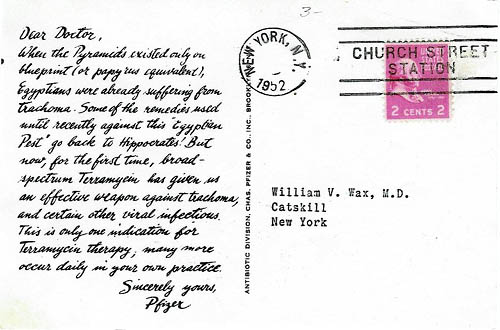 3-
Dear Doctor,
When the Pyramids existed only on
blueprint (or papyrus equivalent),
Egyptians were already suffering from
trachoma. Some of the remedies used
until recently against this "Egyptian
Pest" go back to Hippocrates! But
now, for the first time, broad-
spectrum Terramycin has given us
an effective weapon against trachoma,
and certain other viral infections.
This is only one indication for
Terramycin therapy; many more
occur daily in your own practice.
Sincerely yours,
Pfizer
ANTIBIOTIC DIVISION, CHAS. PFIZER & CO., INC., BROOKLYN
NEW YORK, N.Y.
1952
CHURCH STREET
STATION
2 CENTS 2
William V. Wax, M.D.
Catskill
New York